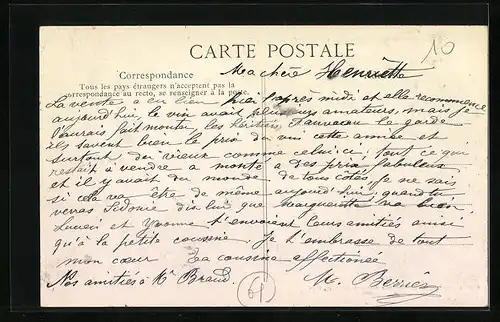 CARTE POSTALE
10
Correspondance
Tous les pays étrangers n'acceptent pas la
correspondance au recto, se renseigner à la poste.
Ma chère Henriette
La vente a eu lieu hier l'après midi et elle recommence
aujourd'hui, le vin avait plusieurs amateurs, mais je
l'aurais fait monter, les héritiers la garde
ils savent bien le prix du vin cette année et
surtout du vieux comme celui-ci, tout ce qui
restait à vendre a monté à des prix fabuleux
et il y avait du monde de tous cotés je ne sais
si cela va être de même aujourd'hui, quand tu
verras Sidonie dis lui que Marguerite va bien.
Lucien et Yvonne t'envoient leurs amitiés ainsi
qu'à la petite cousine. Je t'embrasse de tout
mon cœur Ta cousine affectionée
Nos amitiés à Mr Braud.